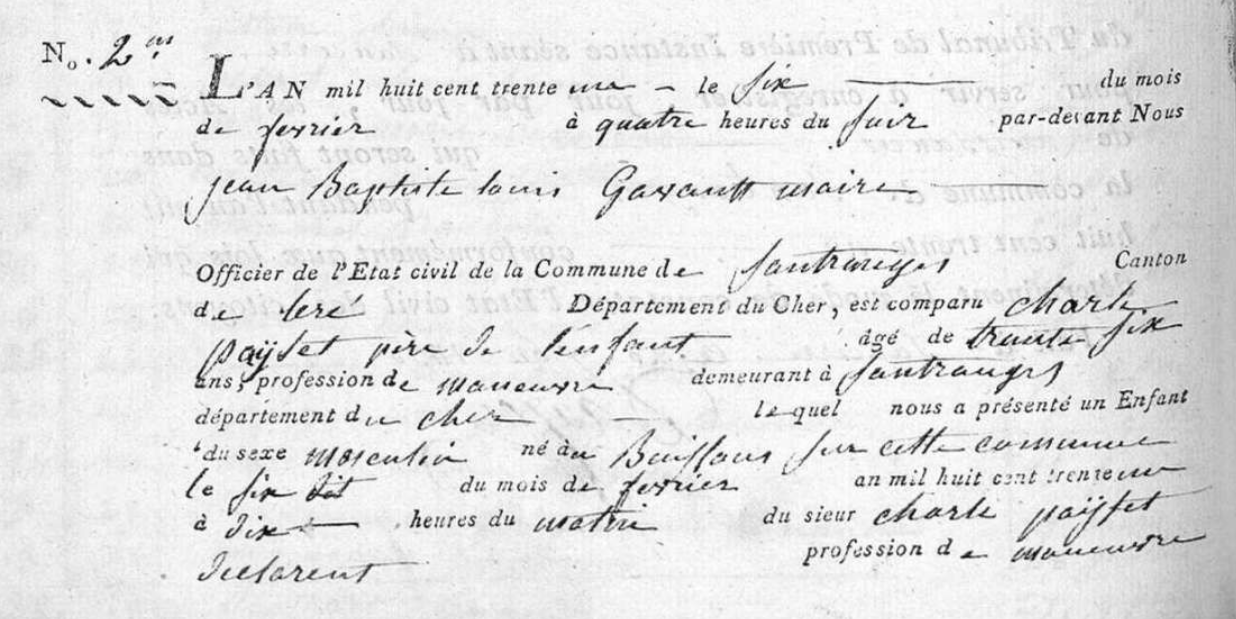 No. 2me
L'AN mil huit cent trente une - le six du mois
de fevrier à quatre heures du soir par-devant Nous
jean Baptiste louis maire
Officier de l'Etat civil de la Commune de santranges Canton
de leré Département du Cher, est comparu charle
païset père de l'enfant âgé de trante six
ans, profession de maneuvre demeurant à santranges
département du cher lequel nous a présenté un Enfant
du sexe masculin né au Buissons sur cette commune
le six dit du mois de fevrier an mil huit cent trente un
à dix heures du matin du sieur charle païset
declarent profession de maneuvre